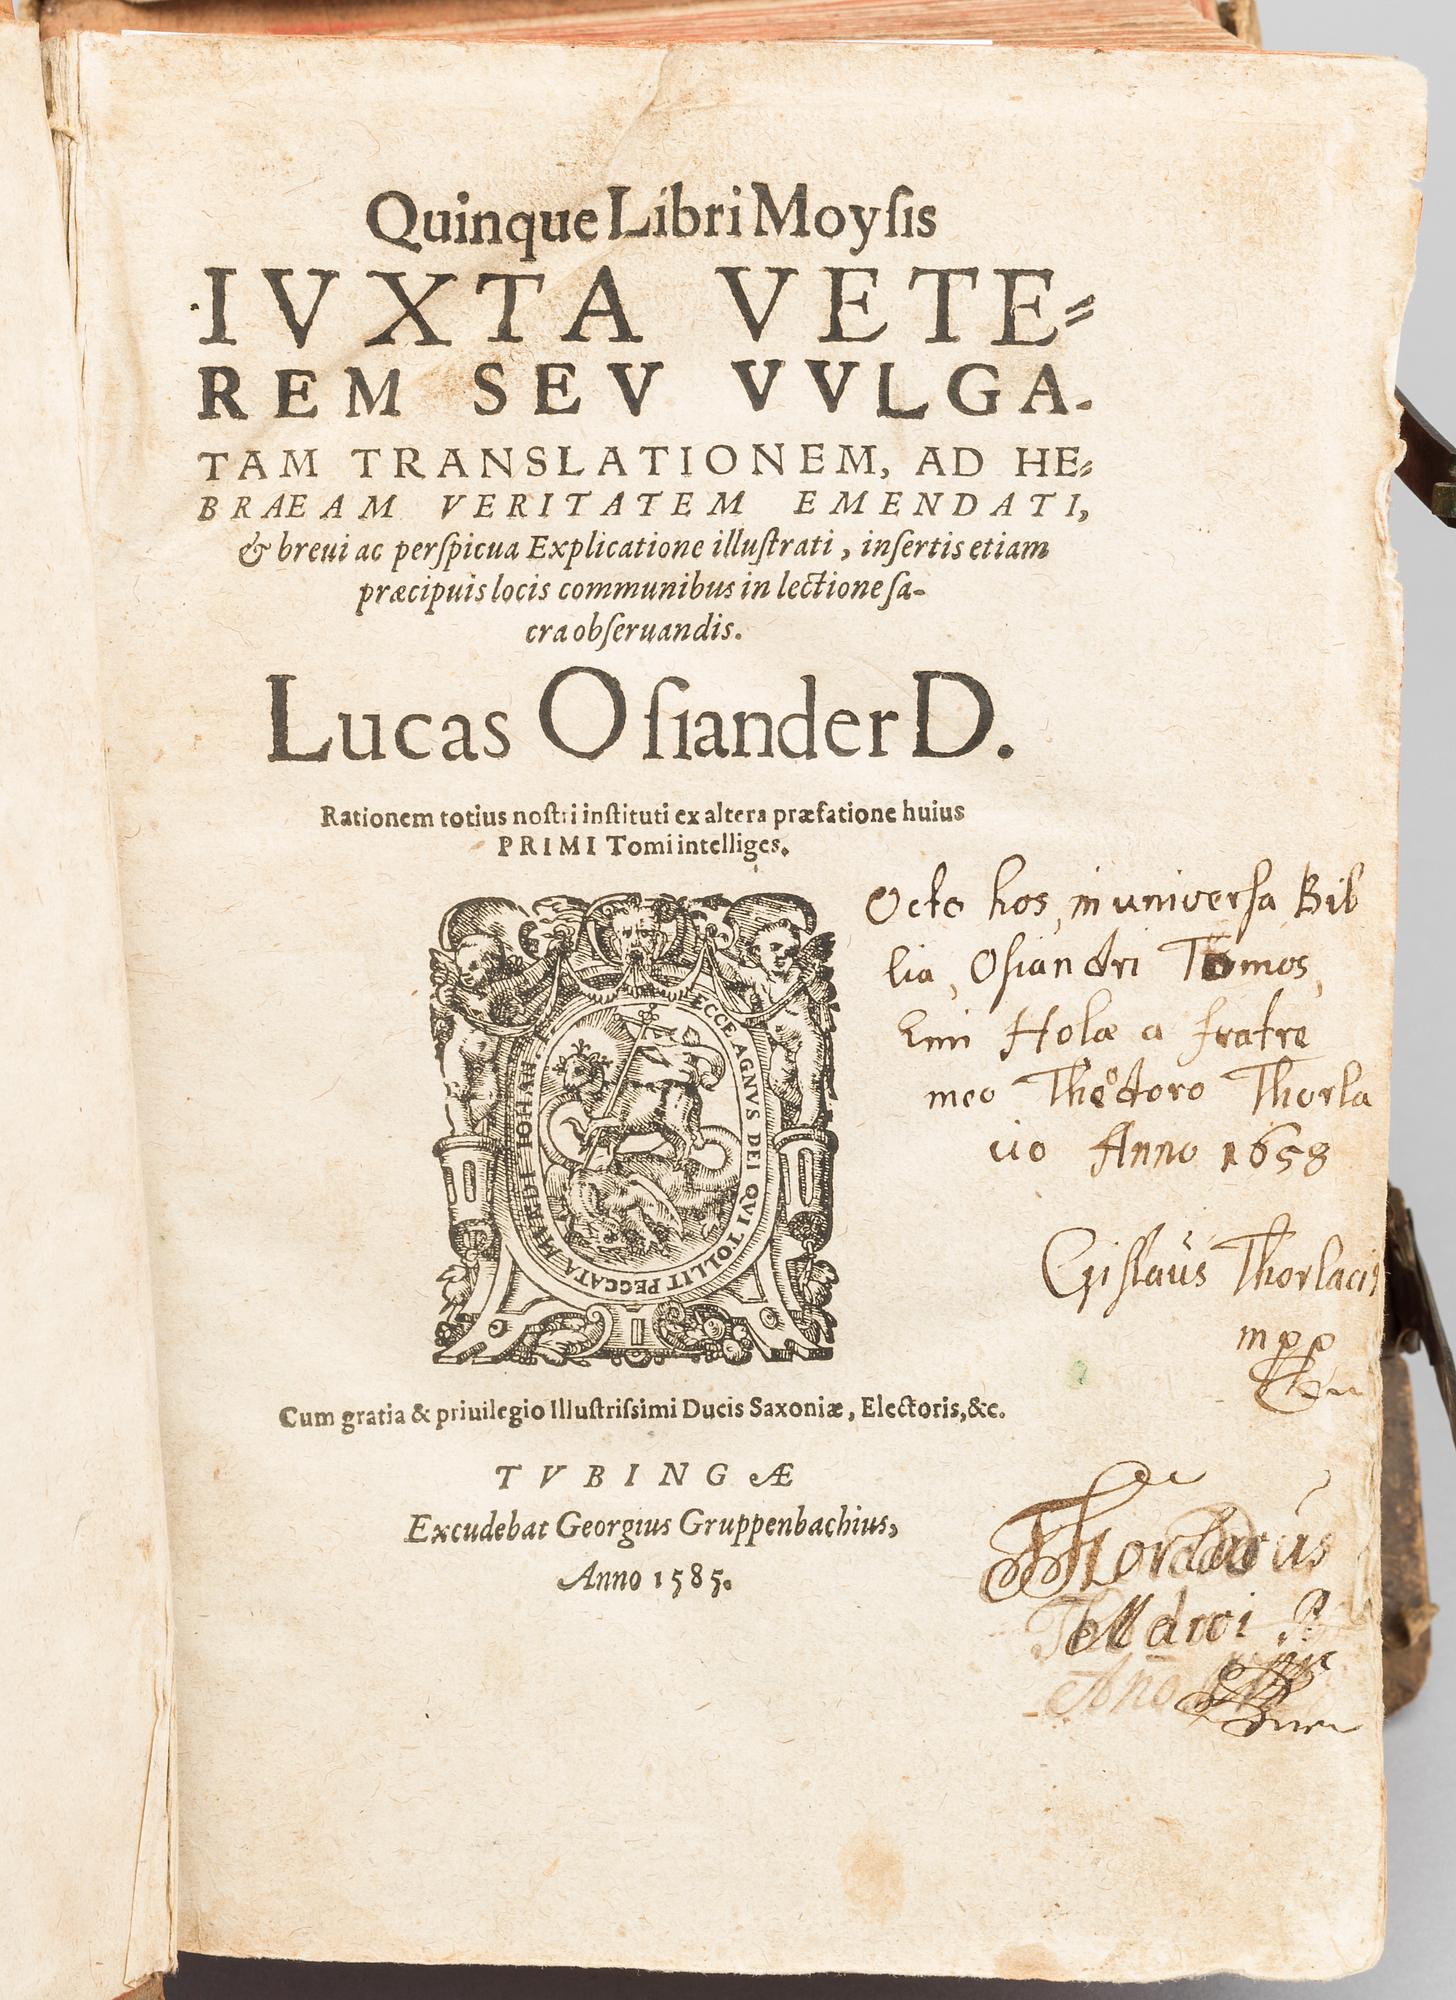 Quinque Libri Moyſis
IVXTA VETE=
REM SEV VVLGA-
TAM TRANSLATIONEM, AD HE=
BRAEAM VERITATEM EMENDATI,
& breui ac perſpicua Explicatione illuſtrati, inſertis etiam
præcipuis locis communibus in lectione ſa-
cra obſeruandis.
Lucas Oſiander D.
Rationem totius noſtri inſtituti ex altera præfatione huius
PRIMI Tomi intelliges.
Octo hos, in universa Bib
lia, Osiandri Tomos,
Emi Holæ a fratre
meo Theodoro Thorla
cio Anno 1658
Gislaus Thorlaciꝯ
mpp
ECCE AGNVS DEI QVI TOLLIT PECCATA MVNDI IOHAN.
Cum gratia & priuilegio Illuſtriſſimi Ducis Saxoniæ, Electoris, &c.
TVBINGÆ
Excudebat Georgius Gruppenbachius,
Anno 1585.